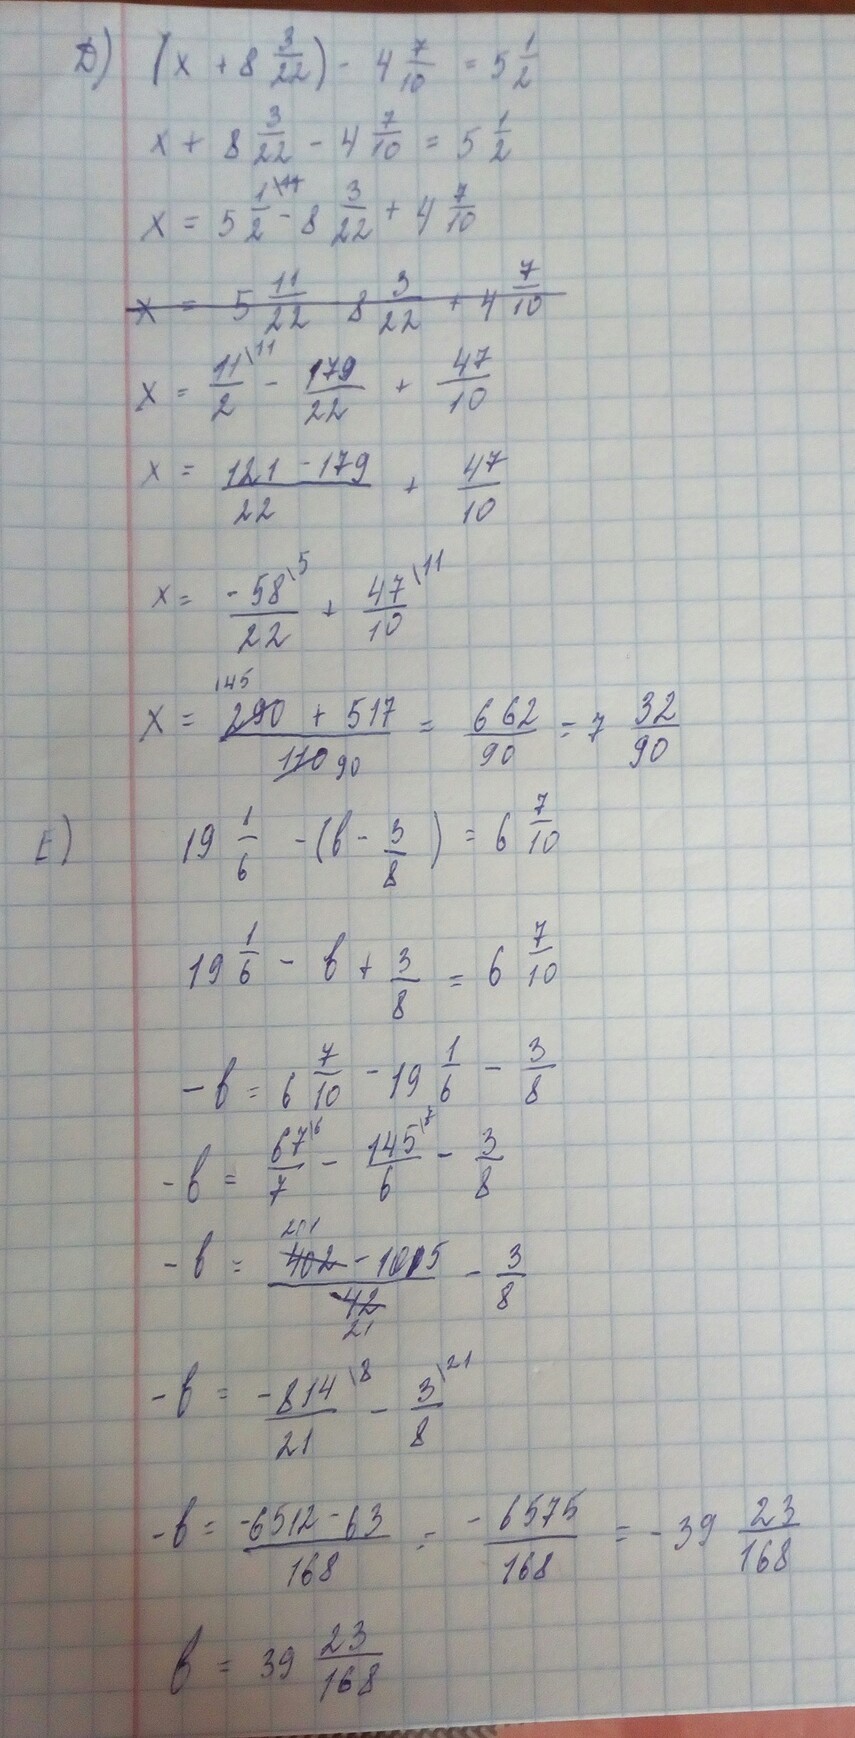 D) (x + 8 3/22) - 4 7/10 = 5 1/2
x + 8 3/22 - 4 7/10 = 5 1/2
x = 5 1/2 \11 - 8 3/22 + 4 7/10
x = 5 11/22 8 3/22 + 4 7/10
x = 11/2 \11 - 179/22 + 47/10
x = (121 - 179)/22 + 47/10
x = -58/22 \5 + 47/10 \11
145
x = (290 + 517)/110 90 = 662/90 = 7 32/90
E) 19 1/6 - (b - 3/8) = 6 7/10
19 1/6 - b + 3/8 = 6 7/10
-b = 6 7/10 - 19 1/6 - 3/8
-b = 67/7 \6 - 145/6 \7 - 3/8
201
-b = (402 - 1015)/42 - 3/8
21
-b = -814/21 \8 - 3/8 \21
-b = (-6512 - 63)/168 = -6575/168 = -39 23/168
b = 39 23/168